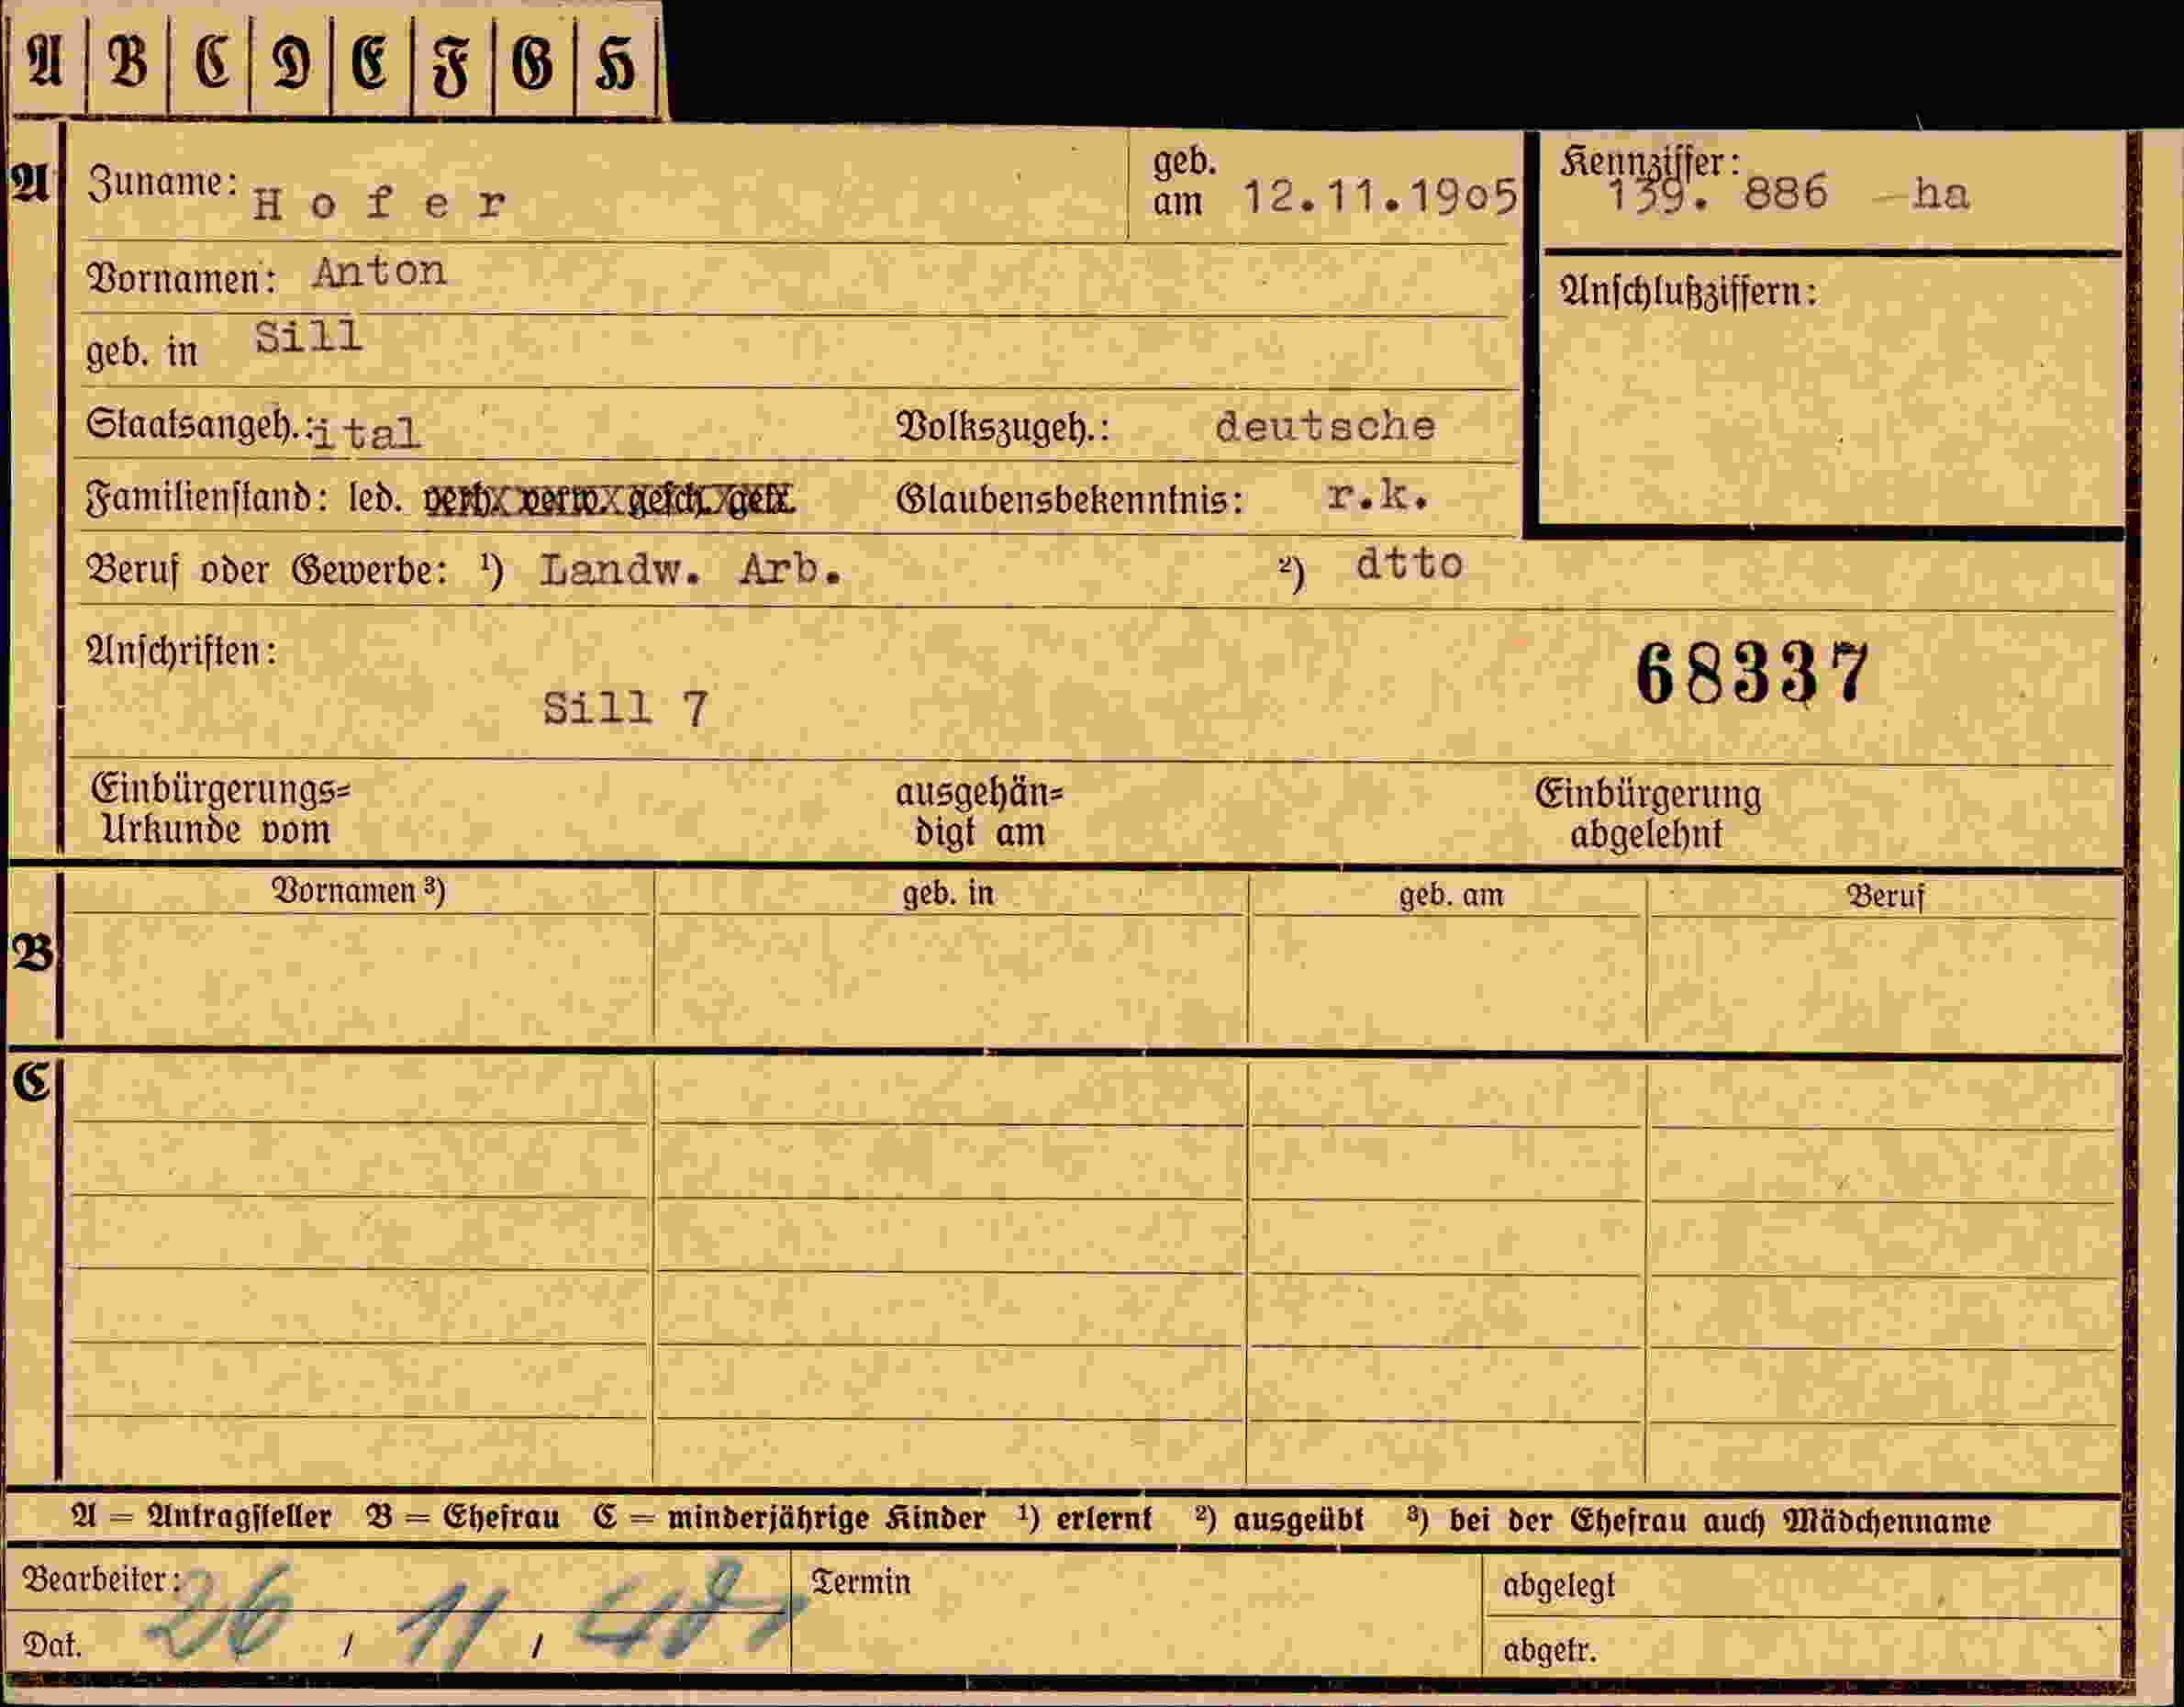 A B C D E F G H
A
Zuname: Hofer
geb. am 12.11.1905
Kennziffer: 139. 886 - ha
Vornamen: Anton
Anschlußziffern:
geb. in Sill
Staatsangeh.: ital
Volkszugeh.: deutsche
Familienstand: led. verh. verw. gesch. getr.
Glaubensbekenntnis: r.k.
Beruf oder Gewerbe: ¹) Landw. Arb.
²) dtto
Anschriften:
68337
Sill 7
Einbürgerungs=
Urkunde vom
ausgehän=
digt am
Einbürgerung
abgelehnt
B
Vornamen ³)
geb. in
geb. am
Beruf
C
A = Antragsteller B = Ehefrau C = minderjährige Kinder ¹) erlernt ²) ausgeübt ³) bei der Ehefrau auch Mädchenname
Bearbeiter:
Termin
abgelegt
Dat. 26 / 11 /
abgetr.